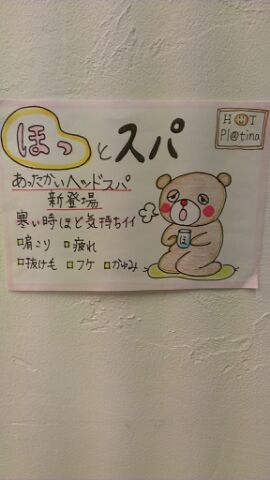 ほっとスパ
HOT
Pl@tina
あったかいヘッドスパ
新登場
寒い時ほど気持ちイイ
肩こり 疲れ
抜け毛 フケ かゆみ
ほ